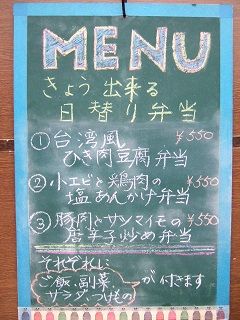 MENU
きょう出来る
日替り弁当
① 台湾風 ¥550
ひき肉豆腐弁当
② 小エビと鶏肉の ¥550
塩あんかけ弁当
③ 豚肉とサツマイモの ¥550
唐辛子炒め弁当
それぞれに
ご飯、副菜、
サラダ、つけもの
が付きます